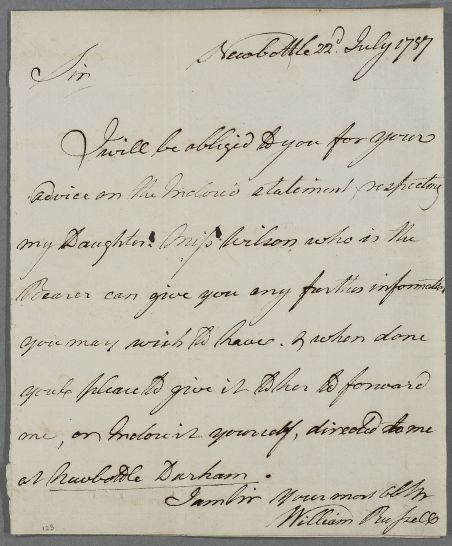 Newbottle 22d. July 1787
Sir
I will be obliged to you for your
advice on the Inclos'd statement respecting
my Daughter. Miss Wilson who is the
Bearer can give you any further information
you may wish to have. & when done
you'l please to give it to her to forward
me, or Inclose it yourself, directed to me
at Newbottle Durham.
I am Sir Your most Obt Sr
William Russell
123